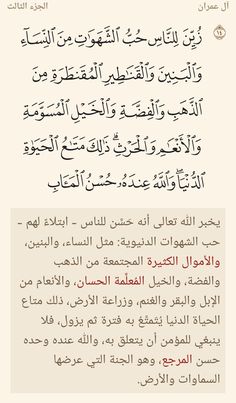 آل عمران الجزء الثالث
١٤ زُيِّنَ لِلنَّاسِ حُبُّ ٱلشَّهَوَٰتِ مِنَ ٱلنِّسَآءِ
وَٱلْبَنِينَ وَٱلْقَنَٰطِيرِ ٱلْمُقَنطَرَةِ مِنَ
ٱلذَّهَبِ وَٱلْفِضَّةِ وَٱلْخَيْلِ ٱلْمُسَوَّمَةِ
وَٱلْأَنْعَٰمِ وَٱلْحَرْثِۗ ذَٰلِكَ مَتَٰعُ ٱلْحَيَوٰةِ
ٱلدُّنْيَاۖ وَٱللَّهُ عِندَهُۥ حُسْنُ ٱلْمَـَٔابِ
يخبر الله تعالى أنه حَسّن للناس - ابتلاءً لهم -
حب الشهوات الدنيوية: مثل النساء، والبنين،
والأموال الكثيرة المجتمعة من الذهب
والفضة، والخيل المُعلَّمة الحسان، والأنعام من
الإبل والبقر والغنم، وزراعة الأرض، ذلك متاع
الحياة الدنيا يُتمتَّع به فترة ثم يزول، فلا
ينبغي للمؤمن أن يتعلق به، والله عنده وحده
حسن المرجع، وهو الجنة التي عرضها
السماوات والأرض.